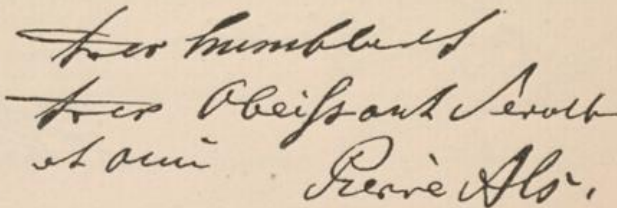 tres humble et
tres Obeissant Servit
et ami Pierre Als.